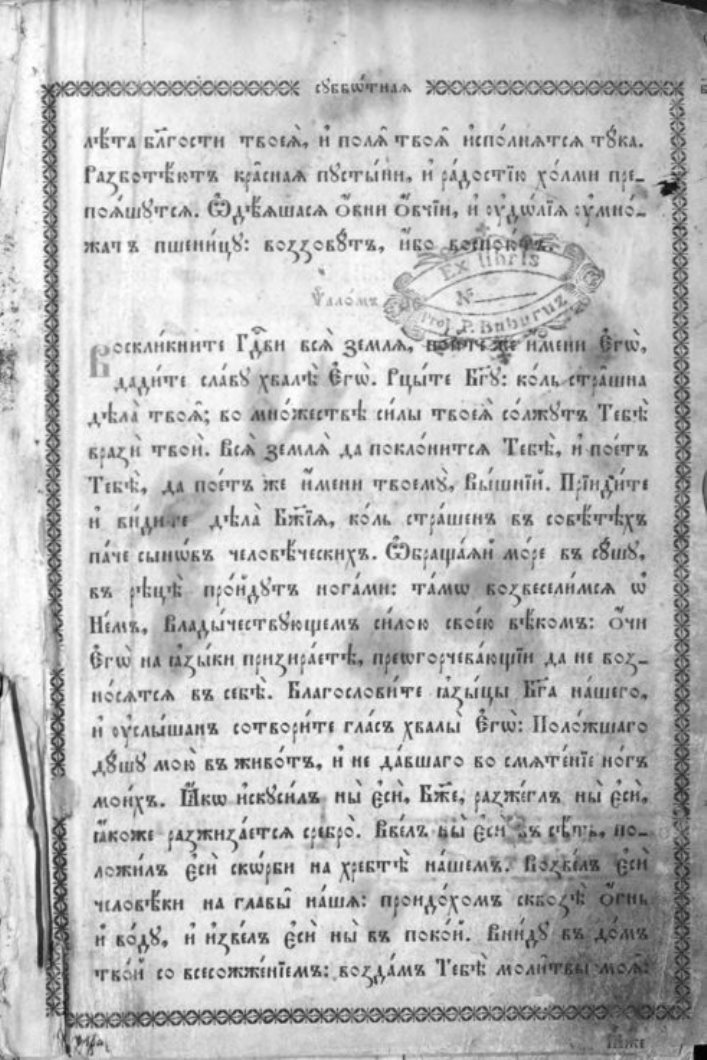 сꙋббѡ́тнаѧ
лѣ́та бл҃гости твоеѧ̀, и҆ полѧ̑ твоѧ̑ и҆спо́лнѧтсѧ тꙋ́ка.
Разботѣ́ютъ кра̑снаѧ пꙋсты́ни, и҆ ра́достїю хо́лми пре-
поѧ́шꙋтсѧ. Ѡ҆дѣ́ѧшасѧ ѻ҆́вни ѻ҆́вчїи, и҆ ᲂу҆дѡ́лїѧ ᲂу҆мно́-
жатъ пшени́цꙋ: воззовꙋ́тъ, и҆́бо воспою́тъ.
Ѱало́мъ
Воскли́кните Гдⷭ҇ви всѧ̀ землѧ̀, по́йте же и҆́мени Є҆гѡ̀,
дади́те сла́вꙋ хвалѣ̀ Є҆гѡ̀. Рцы́те Бг҃ꙋ: ко́ль стра̑шна
дѣла̀ твоѧ̑; во мно́жествѣ си́лы твоеѧ̀ со́лжꙋтъ Тебѣ̀
вразѝ твоѝ. Всѧ̀ землѧ̀ да покло́нитсѧ Тебѣ̀, и҆ пое́тъ
Тебѣ̀, да пое́тъ же и҆́мени твоемꙋ̀, Вы́шнїй. Прїиди́те
и҆ ви́дите дѣла̀ Бж҃їѧ, ко́ль стра́шенъ въ совѣ́тѣхъ
па́че сынѡ́въ человѣ́ческихъ. Ѡ҆браща́ѧй мо́ре въ сꙋ́шꙋ,
въ рѣцѣ̀ про́йдꙋтъ нога́ми: та́мѡ возвесели́мсѧ ѡ҆
Не́мъ, Влады́чествꙋющемъ си́лою свое́ю вѣ́комъ: ѻ҆́чи
Є҆гѡ̀ на ꙗ҆зы́ки призира́етѣ, преѡгорчева́ющїи да не воз-
но́сѧтсѧ въ себѣ̀. Благослови́те ꙗ҆зы́цы Бг҃а на́шего,
и҆ ᲂу҆слы́шанъ сотвори́те гла́съ хвалы̀ Є҆гѡ̀: Поло́жшаго
дꙋ́шꙋ мою̀ въ живо́тъ, и҆ не да́вшаго во смѧте́нїе но́гъ
мои́хъ. Ꙗ҆́кѡ и҆скꙋси́лъ ны̀ є҆сѝ, Бж҃е, разже́глъ ны̀ є҆сѝ,
ꙗ҆́коже разжиза́етсѧ сребро̀. Вве́лъ ны̀ є҆сѝ въ сѣ́ть, по-
ложи́лъ є҆сѝ скѡ́рби на хребтѣ̀ на́шемъ. Возве́лъ є҆сѝ
человѣ́ки на главы̑ на́шѧ: проидо́хомъ сквозѣ̀ ѻ҆́гнь
и҆ во́дꙋ, и҆ и҆зве́лъ є҆сѝ ны̀ въ поко́й. Вни́дꙋ въ до́мъ
тво́й со всесожже́нїемъ: возда́мъ Тебѣ̀ моли́твы моѧ̑:
Ꙗ҆́же
Ex libris
№
Prof. P. Buburuz